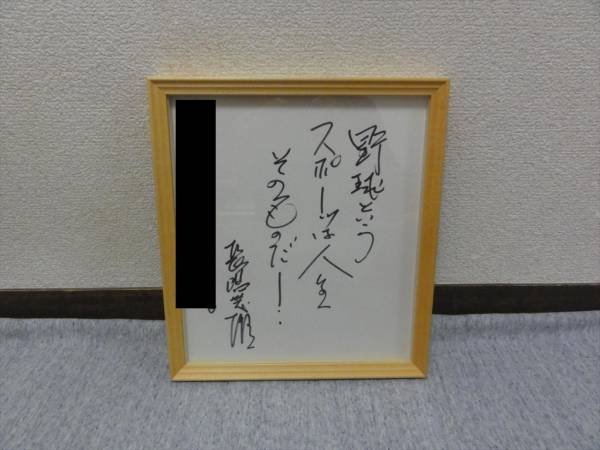 野球という
スポーツは人生
そのものだ！
長嶋茂雄